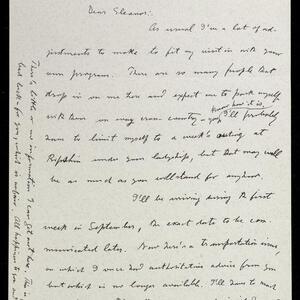 Dear Eleanor:
As usual I'm a lot of ad-
justments to make to fit my visit in with your
own program. There are so many people that
drop in on me here and expect me to park myself
with them on my cross country – you know how it is, I'll probably
have to limit myself to a week's outing at
Ripshin under your ladyship, but that may well
be as much as you will stand for anyhow.
I'll be arriving during the first
week in September, the exact date to be com-
municated later. Now there's a transportation issue,
on which I once had authoritative advice from you
but which is no longer available. I'll have to
There's little or no information I can get out here. The
best luck – for you which is unfair. All happiness to you